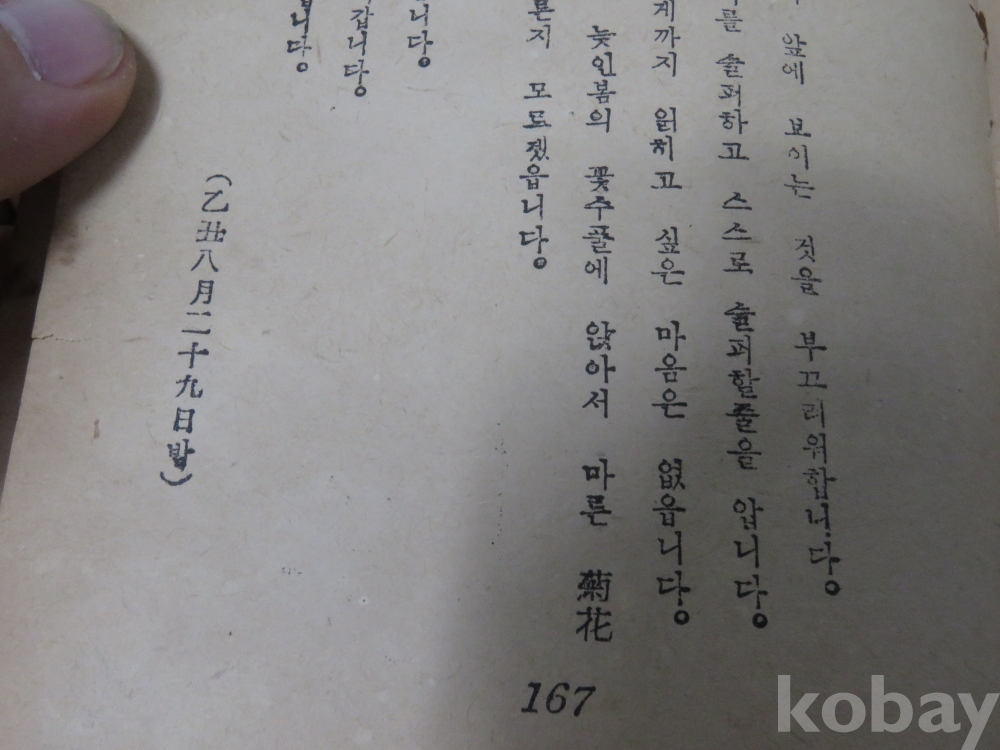 앞에 보이는 것을 부끄러워합니다。
를 슬퍼하고 스스로 슬퍼할줄을 압니다。
게까지 읽히고 싶은 마음은 없읍니다。
늦인봄의 꽃수풀에 앉아서 마른 菊花
른지 모르겠읍니다。
니다。
갑니다。
니다。
(乙丑八月二十九日밤)
167
kobay